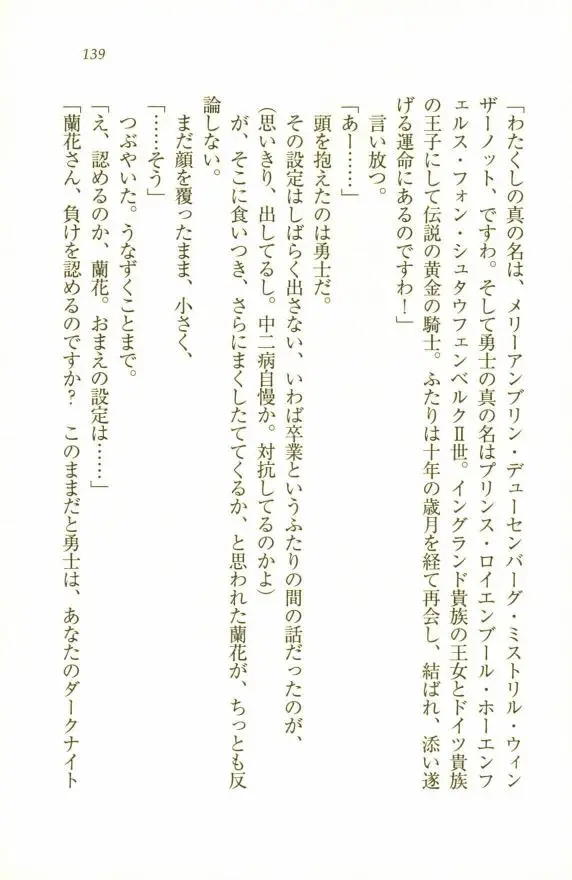 139
「わたくしの真の名は、メリーアンブリン・デューセンバーグ・ミストリル・ウィン
ザーノット、ですわ。そして勇士の真の名はプリンス・ロイエンブール・ホーエンフ
ェルス・フォン・シュタウフェンベルクⅡ世。イングランド貴族の王女とドイツ貴族
の王子にして伝説の黄金の騎士。ふたりは十年の歳月を経て再会し、結ばれ、添い遂
げる運命にあるのですわ！」
言い放つ。
「あー……」
頭を抱えたのは勇士だ。
その設定はしばらく出さない、いわば卒業というふたりの間の話だったのが、
(思いきり、出してるし。中二病自慢か。対抗してるのかよ)
が、そこに食いつき、さらにまくしたててくるか、と思われた蘭花が、ちっとも反
論しない。
まだ顔を覆ったまま、小さく、
「……そう」
つぶやいた。うなずくことまで。
「え、認めるのか、蘭花。おまえの設定は……」
「蘭花さん、負けを認めるのですか？　このままだと勇士は、あなたのダークナイト